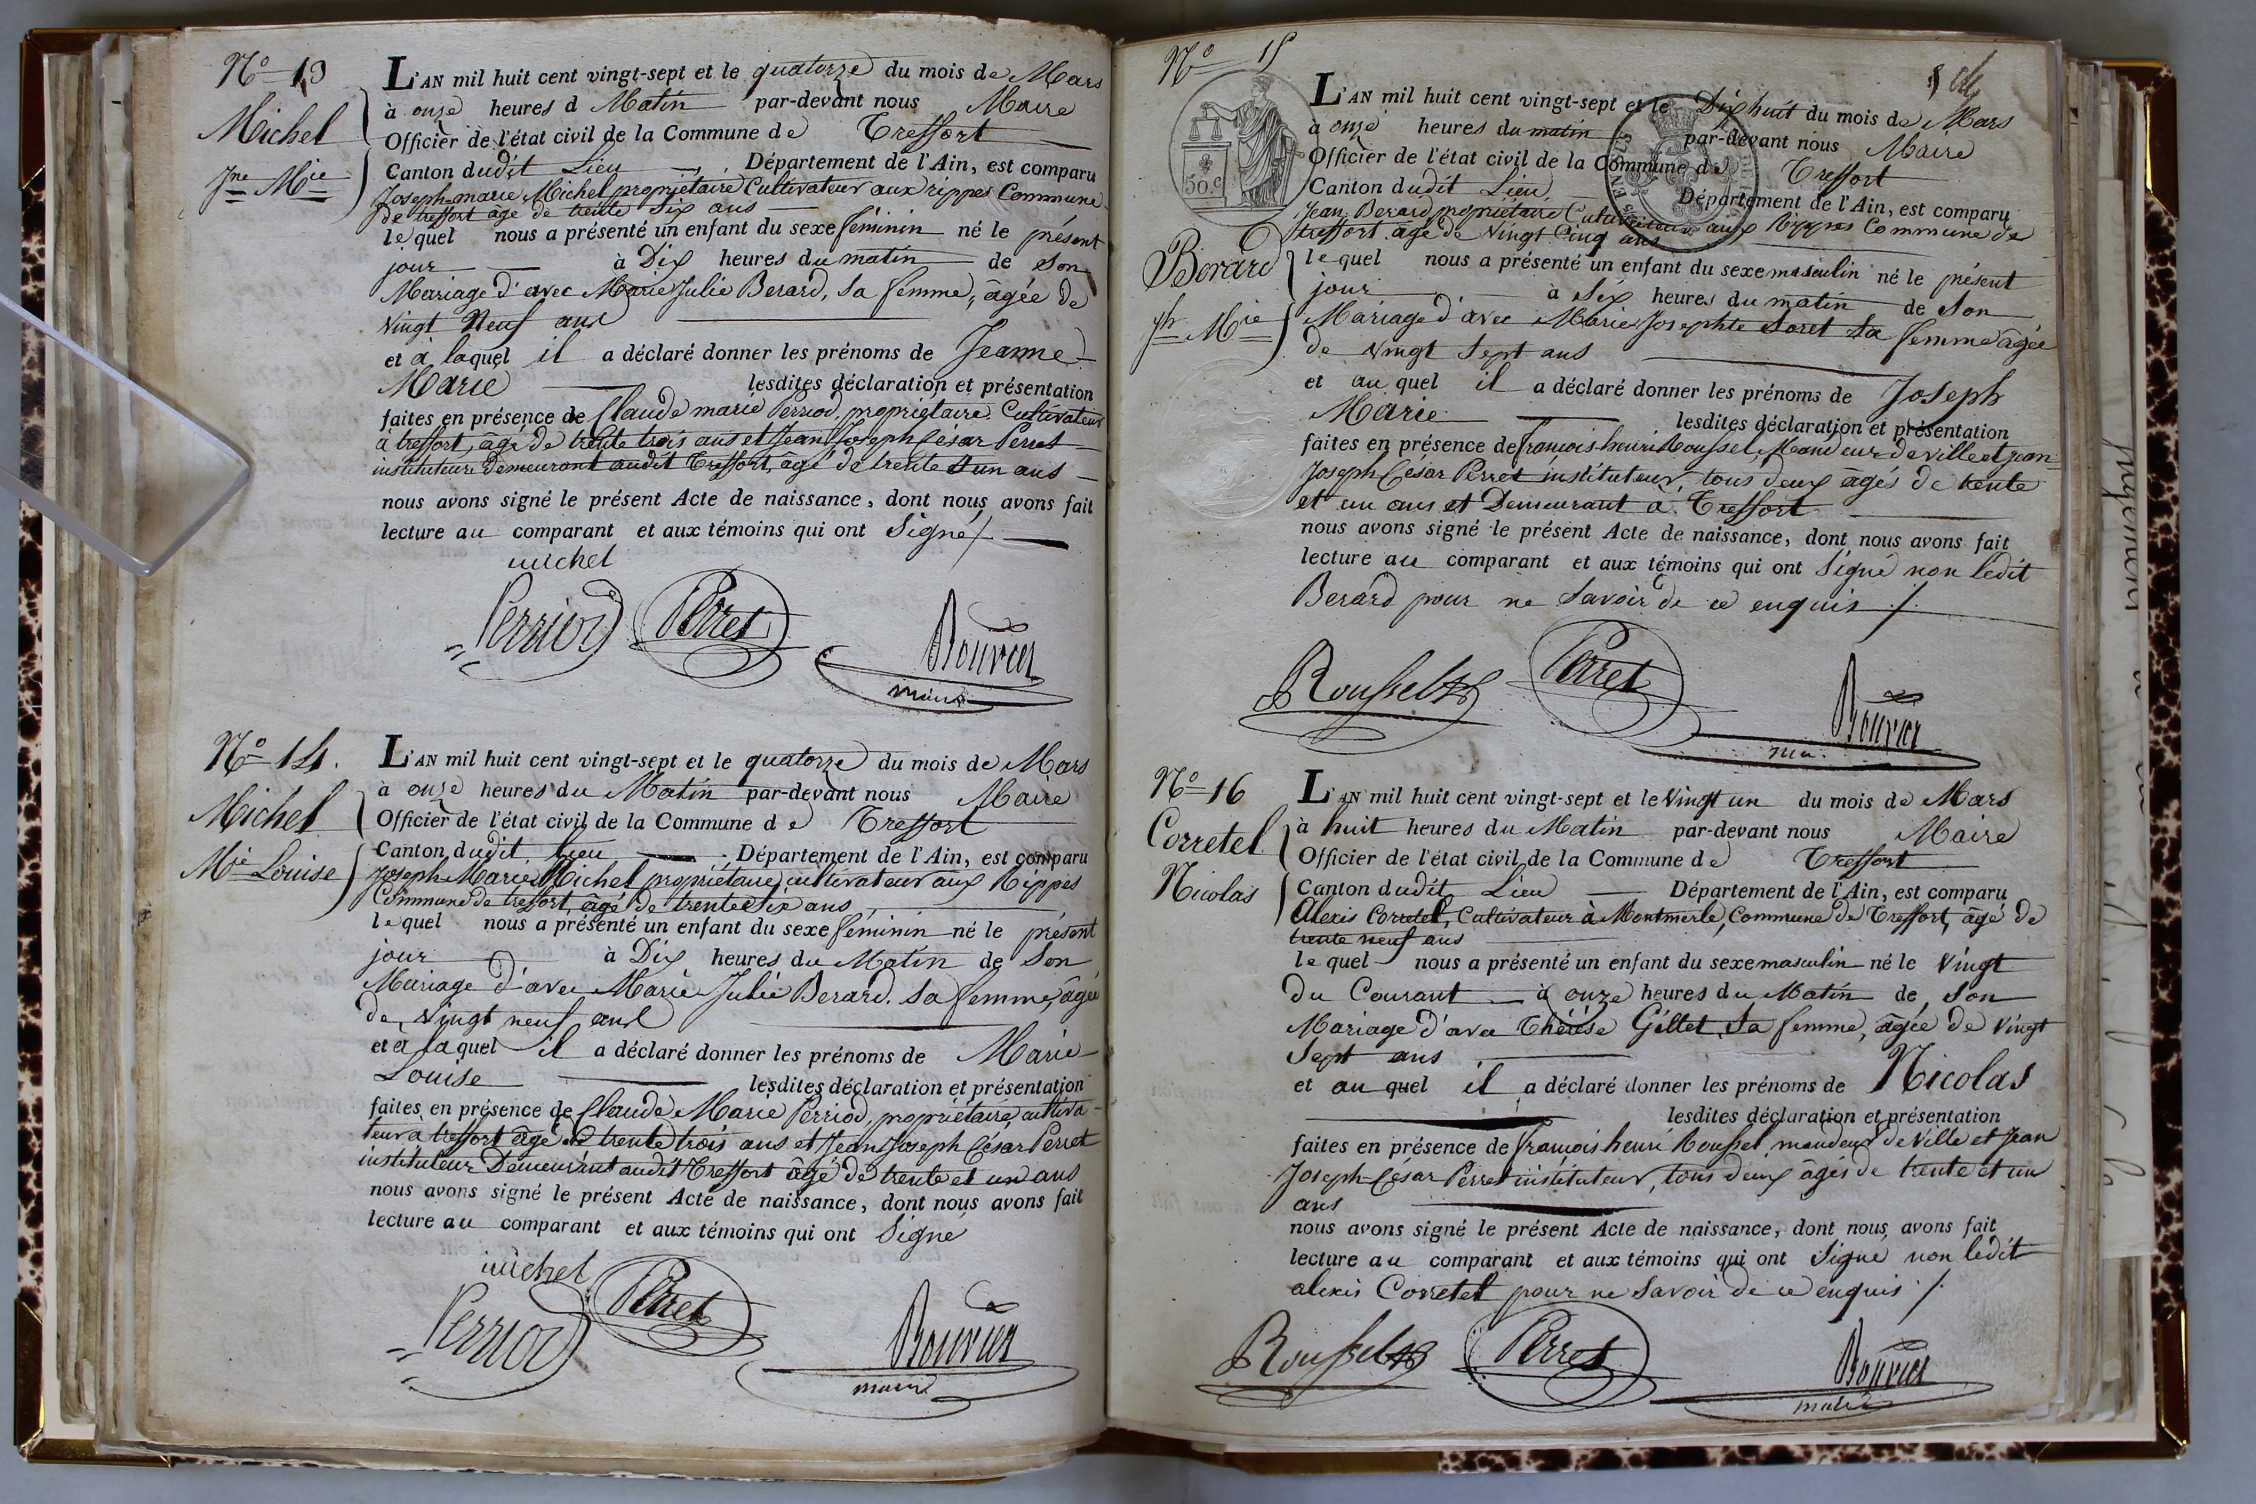 No 13
Michel
Jne Mie
L'AN mil huit cent vingt-sept et le quatorze du mois de Mars
à onze heures d Matin par-devant nous Maire
Officier de l'état civil de la Commune de Treffort
Canton dudit Lieu Département de l'Ain, est comparu
Joseph-marie Michel propriétaire Cultivateur aux rippes Commune
de treffort âgé de trente six ans
lequel nous a présenté un enfant du sexe féminin né le présent
jour à Dix heures du matin de son
Mariage d'avec Marie Julie Berard, sa femme, âgée de
Vingt Neuf ans
et à laquel il a déclaré donner les prénoms de Jeanne-
Marie lesdites déclaration et présentation
faites en présence de Claude marie Perriod, propriétaire Cultivateur
à treffort, âgé de trente trois ans et Jean Joseph César Perret
instituteur demeurant audit Treffort, âgé de trente d'un ans
nous avons signé le présent Acte de naissance, dont nous avons fait
lecture au comparant et aux témoins qui ont Signé/
michel
Perriod Perret Bouvier
maire
No 14.
Michel
Mie Louise
L'AN mil huit cent vingt-sept et le quatorze du mois de Mars
à onze heures du Matin par-devant nous Maire
Officier de l'état civil de la Commune de Treffort
Canton dudit Lieu Département de l'Ain, est comparu
Joseph Marie Michel propriétaire, cultivateur aux Rippes
Commune de treffort, âgé de trente six ans
lequel nous a présenté un enfant du sexe féminin né le présent
jour à Dix heures du Matin de Son
Mariage d'avec Marie Julie Berard. Sa femme, âgée
de vingt neuf ans
et a laquel il a déclaré donner les prénoms de Marie
Louise lesdites déclaration et présentation
faites en présence de Claude Marie Perriod, propriétaire, cultiva-
teur à treffort âgé de trente trois ans et Jean Joseph César Perret
instituteur Demeurant audit Treffort âgé de trente et un ans
nous avons signé le présent Acte de naissance, dont nous avons fait
lecture au comparant et aux témoins qui ont Signé
michel
Perriod Perret Bouvier
maire
No 15
50.c
Berard
Jh Mie
L'AN mil huit cent vingt-sept et le Dix huit du mois de Mars
à onze heures du matin par-devant nous Maire
Officier de l'état civil de la Commune de Treffort
Canton dudit Lieu Département de l'Ain, est comparu
Jean Berard propriétaire Cultivateur aux Rippes Commune de
treffort âgé de Vingt Cinq ans
lequel nous a présenté un enfant du sexe masculin né le présent
jour à Six heures du matin de Son
Mariage d'avec Marie Josephte Soret Sa femme âgée
de Vingt Sept ans
et au quel il a déclaré donner les prénoms de Joseph
Marie lesdites déclaration et présentation
faites en présence de françois henri Roussel, Mandeur de ville et Jean
Joseph César Perret instituteur, tous deux âgés de trente
et un ans et Demeurant à Treffort
nous avons signé le présent Acte de naissance, dont nous avons fait
lecture au comparant et aux témoins qui ont Signé non ledit
Berard pour ne Savoir de ce enquis /.
Roussel Perret Bouvier
No 16
Corretel
Nicolas
L'AN mil huit cent vingt-sept et le Vingt un du mois de Mars
à huit heures du Matin par-devant nous Maire
Officier de l'état civil de la Commune de Treffort
Canton dudit Lieu Département de l'Ain, est comparu
Alexis Corretel, Cultivateur à Montmerle, Commune de Treffort, âgé de
trente neuf ans
lequel nous a présenté un enfant du sexe masculin né le Vingt
du Courant à onze heures du Matin de Son
Mariage d'avec Thérèse Gillet, Sa femme, âgée de Vingt
Sept ans
et au quel il a déclaré donner les prénoms de Nicolas
lesdites déclaration et présentation
faites en présence de françois henri Roussel, mandeur de Ville et Jean
Joseph César Perret instituteur, tous deux âgés de trente et un
ans
nous avons signé le présent Acte de naissance, dont nous avons fait
lecture au comparant et aux témoins qui ont Signé non ledit
alexis Corretel pour ne Savoir de ce enquis /.
Roussel Perret Bouvier
maire